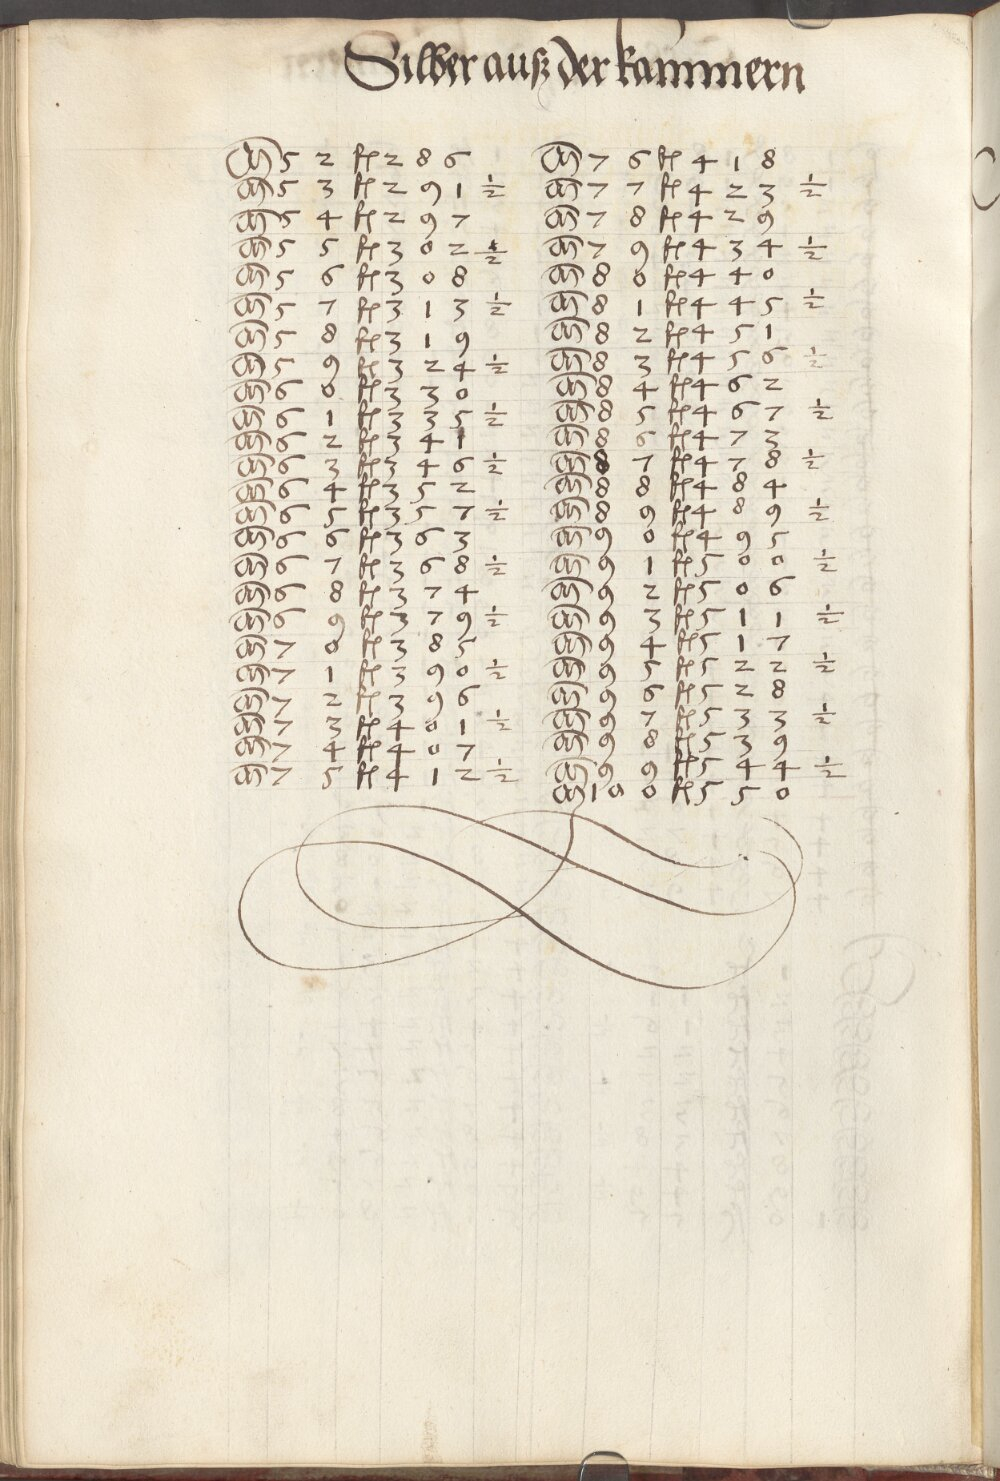 Silber auß der kammern
M 5 2 fl 2 8 6
M 5 3 fl 2 9 1 ½
M 5 4 fl 2 9 7
M 5 5 fl 3 0 2 ½
M 5 6 fl 3 0 8
M 5 7 fl 3 1 3 ½
M 5 8 fl 3 1 9
M 5 9 fl 3 2 4 ½
M 6 0 fl 3 3 0
M 6 1 fl 3 3 5 ½
M 6 2 fl 3 4 1
M 6 3 fl 3 4 6 ½
M 6 4 fl 3 5 2
M 6 5 fl 3 5 7 ½
M 6 6 fl 3 6 3
M 6 7 fl 3 6 8 ½
M 6 8 fl 3 7 4
M 6 9 fl 3 7 9 ½
M 7 0 fl 3 8 5
M 7 1 fl 3 9 0 ½
M 7 2 fl 3 9 6
M 7 3 fl 4 0 1 ½
M 7 4 fl 4 0 7
M 7 5 fl 4 1 2 ½
M 7 6 fl 4 1 8
M 7 7 fl 4 2 3 ½
M 7 8 fl 4 2 9
M 7 9 fl 4 3 4 ½
M 8 0 fl 4 4 0
M 8 1 fl 4 4 5 ½
M 8 2 fl 4 5 1
M 8 3 fl 4 5 6 ½
M 8 4 fl 4 6 2
M 8 5 fl 4 6 7 ½
M 8 6 fl 4 7 3
M 8 7 fl 4 7 8 ½
M 8 8 fl 4 8 4
M 8 9 fl 4 8 9 ½
M 9 0 fl 4 9 5
M 9 1 fl 5 0 0 ½
M 9 2 fl 5 0 6
M 9 3 fl 5 1 1 ½
M 9 4 fl 5 1 7
M 9 5 fl 5 2 2 ½
M 9 6 fl 5 2 8
M 9 7 fl 5 3 3 ½
M 9 8 fl 5 3 9
M 9 9 fl 5 4 4 ½
M 1 0 0 fl 5 5 0